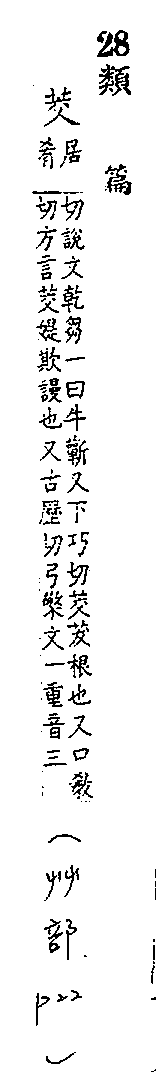 28類篇
茭
居肴切說文乾芻一曰牛蘄又下巧切茭茇根也又口敎
切方言茭媞欺謾也又古歷切弓檠文一重音三
（艸部 p22）